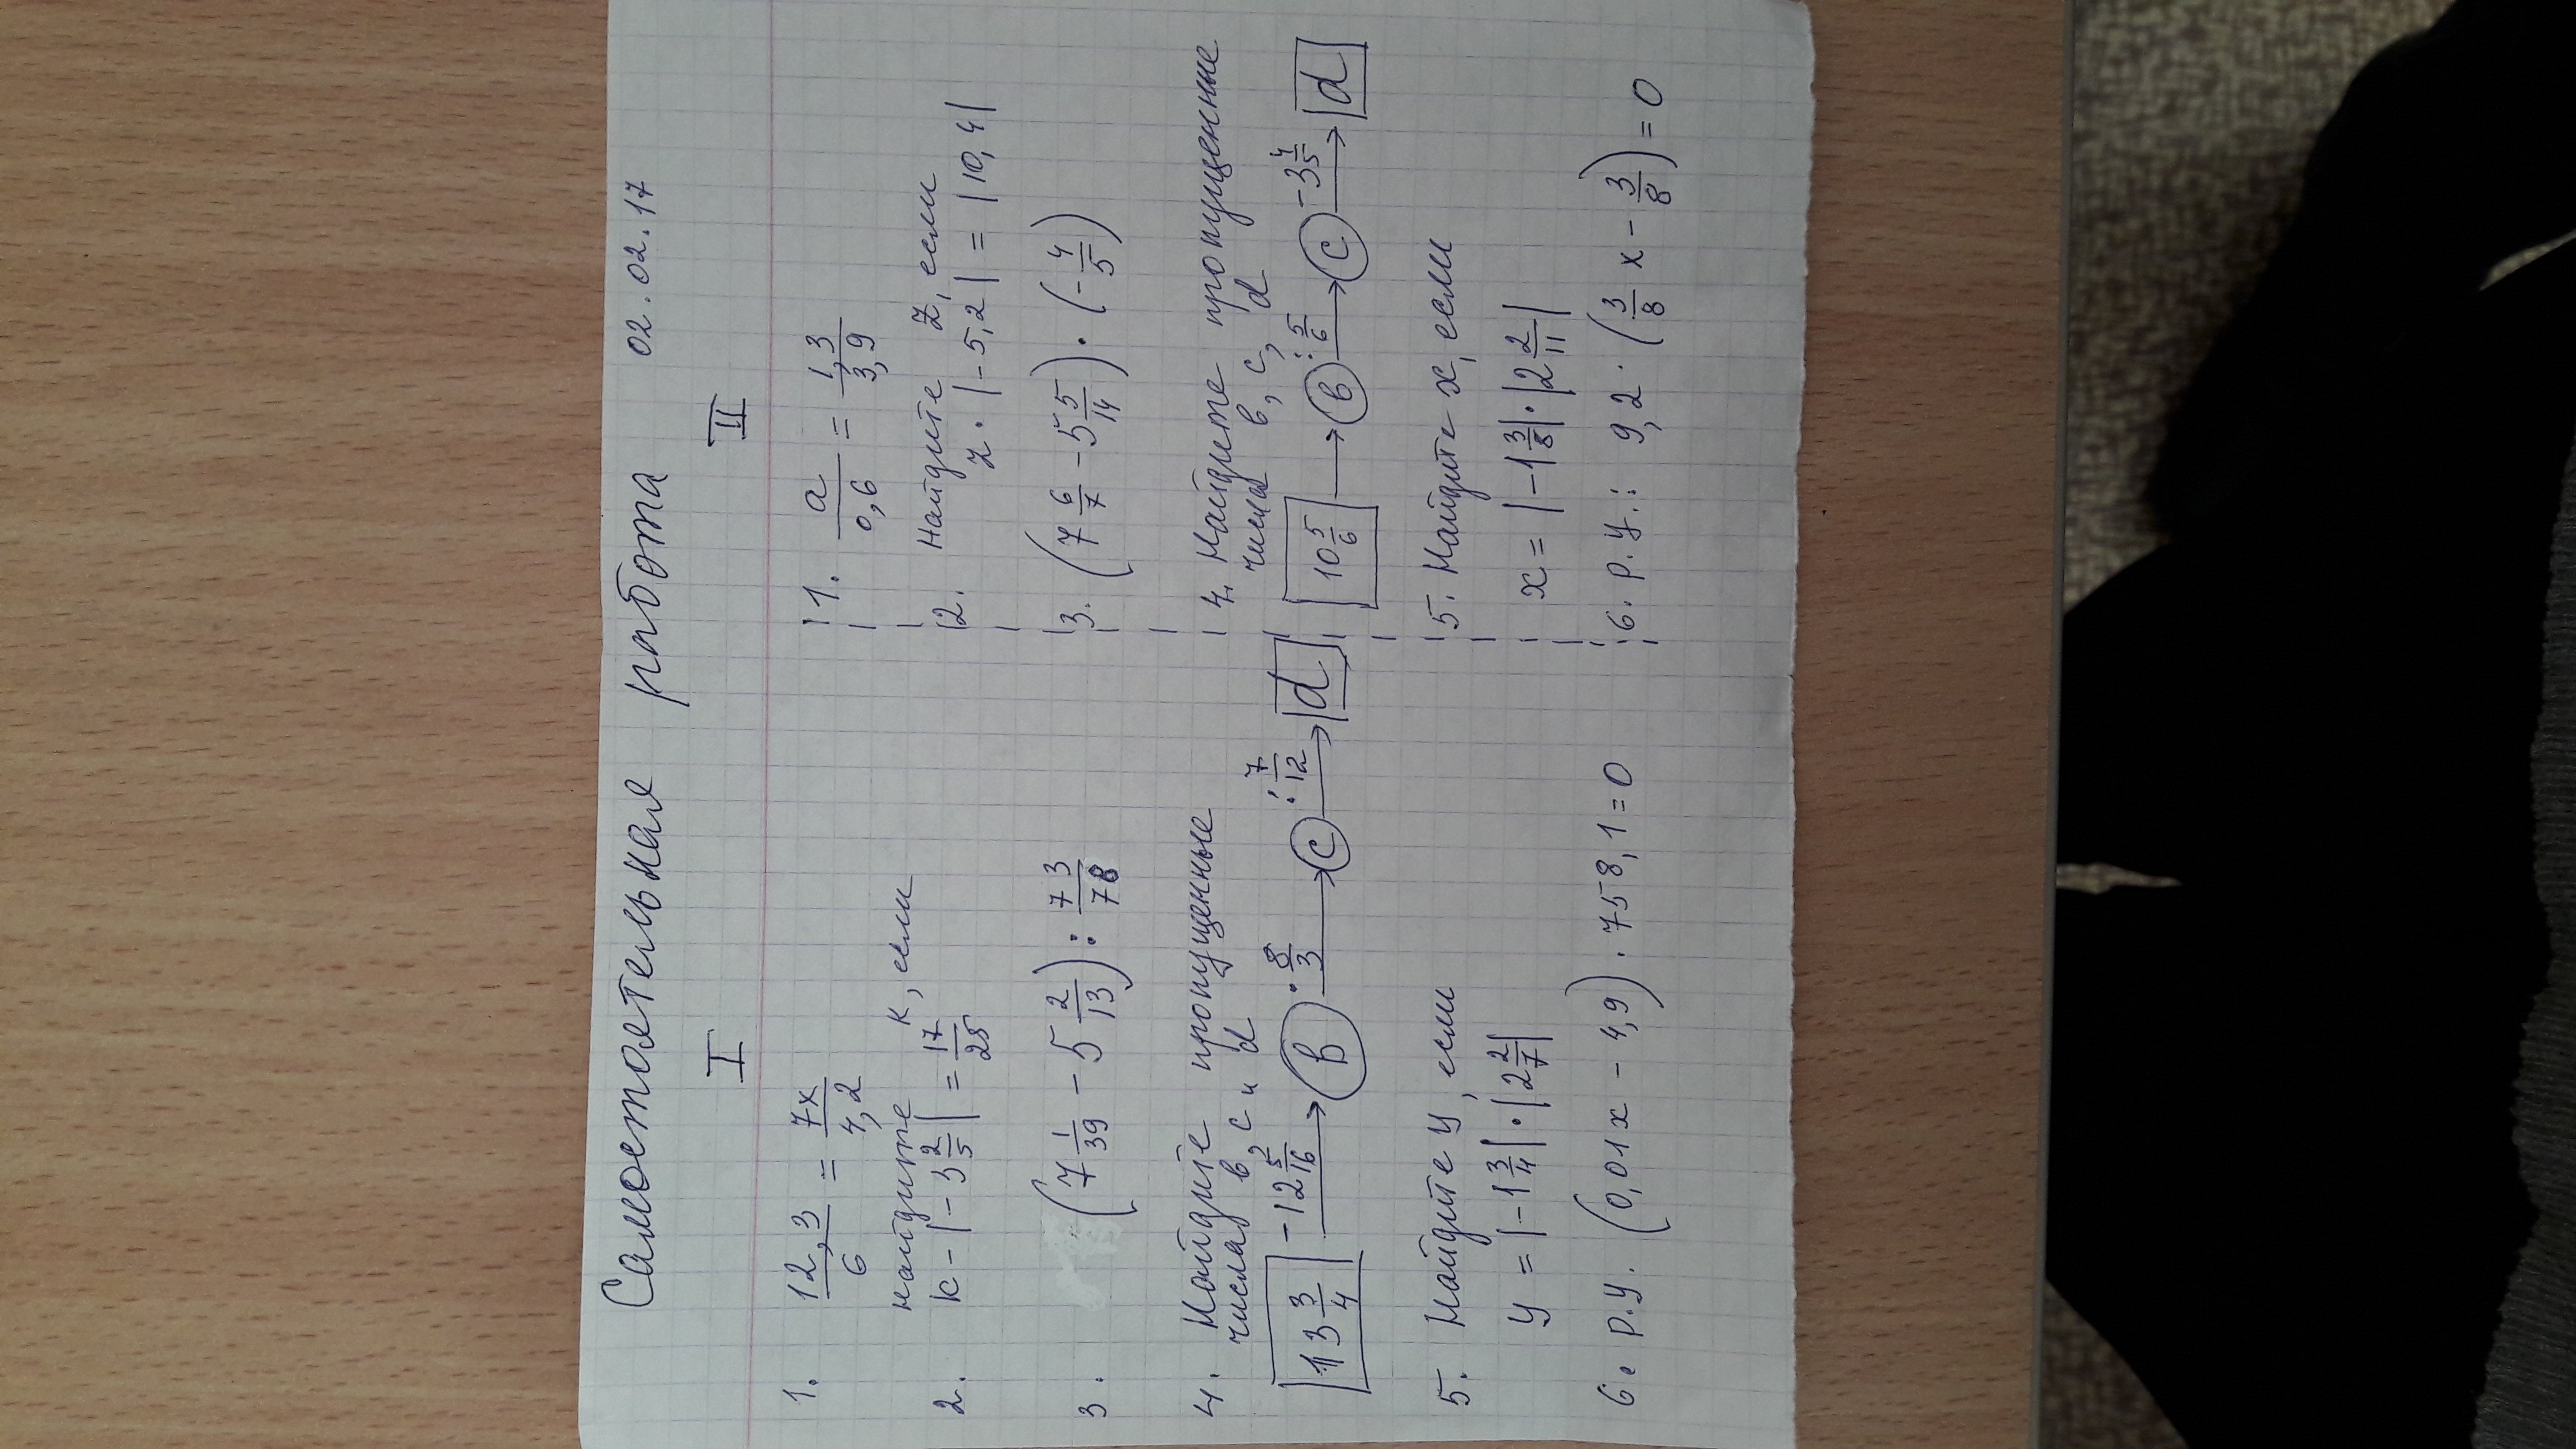 Самостоятельная работа 02.02.17
I
1. 12,3/6 = 7x/4,2
2. найдите к, если
k - |-3 2/5| = 17/25
3. (7 1/39 - 5 2/13) : 73/78
4. Найдите пропущенные
числа в, с и d
13 3/4 - 12 5/16 → B · 8/3 → C : 7/12 → d
5. Найдите y, если
y = |-1 3/4| · |2 2/7|
6. Р.у. (0,01x - 4,9) · 758,1 = 0
II
1. a/0,6 = 1,3/3,9
2. Найдите z, если
z · |-5,2| = |10,4|
3. (7 6/7 - 5 5/14) · (-4/5)
4. Найдите пропущенные
числа в, с, d
10 5/6 → B : 5/6 → C - 3 4/5 → d
5. Найдите x, если
x = |-1 3/8| · |2 2/11|
6. Р.У.: 9,2 · (3/8 x - 3/8) = 0